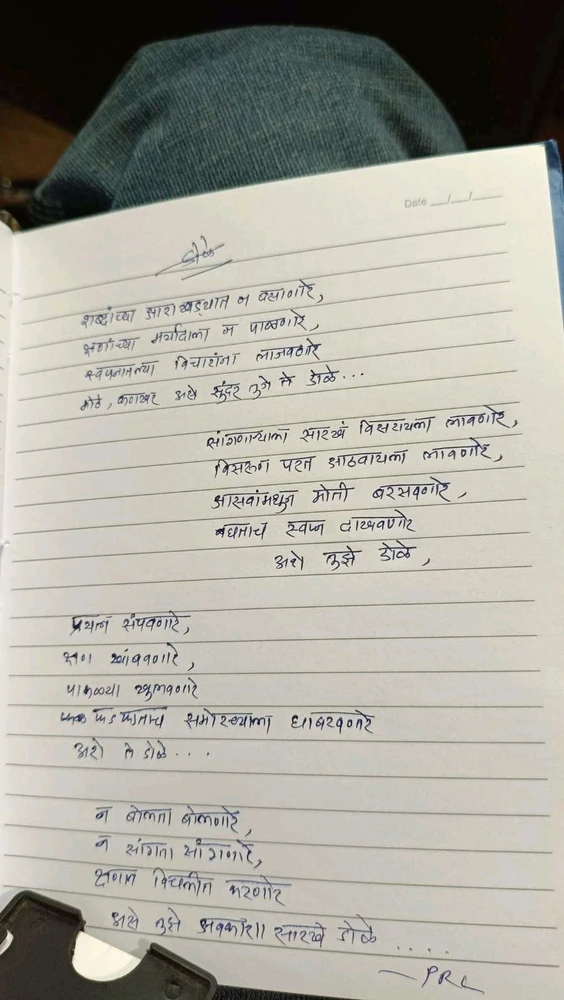 Date __/__/__
डोळे
शब्दांच्या आराखड्यात न बसणारे,
क्षणांच्या मर्यादेला न पाळणारे,
स्वप्नातल्या विचारांना लाजवणारे
मोठे, कणखर असे सुंदर तुझे ते डोळे...
सांगणाऱ्याला सारखं विसरायला लावणारे,
विसरून परत आठवायला लावणारे,
आसवांमधून मोती बरसवणारे,
बघताच स्वप्न दाखवणारे
असे तुझे डोळे,
प्रयत्न संपवणारे,
क्षण थांबवणारे,
पाकळ्या खुलवणारे
फडफडताच समोरच्याला घाबरवणारे
असे ते डोळे...
न बोलता बोलणारे,
न सांगता सांगणारे,
क्षणात विचलीत करणारे
असे तुझे अवकाशा सारखे डोळे ....
- PRC